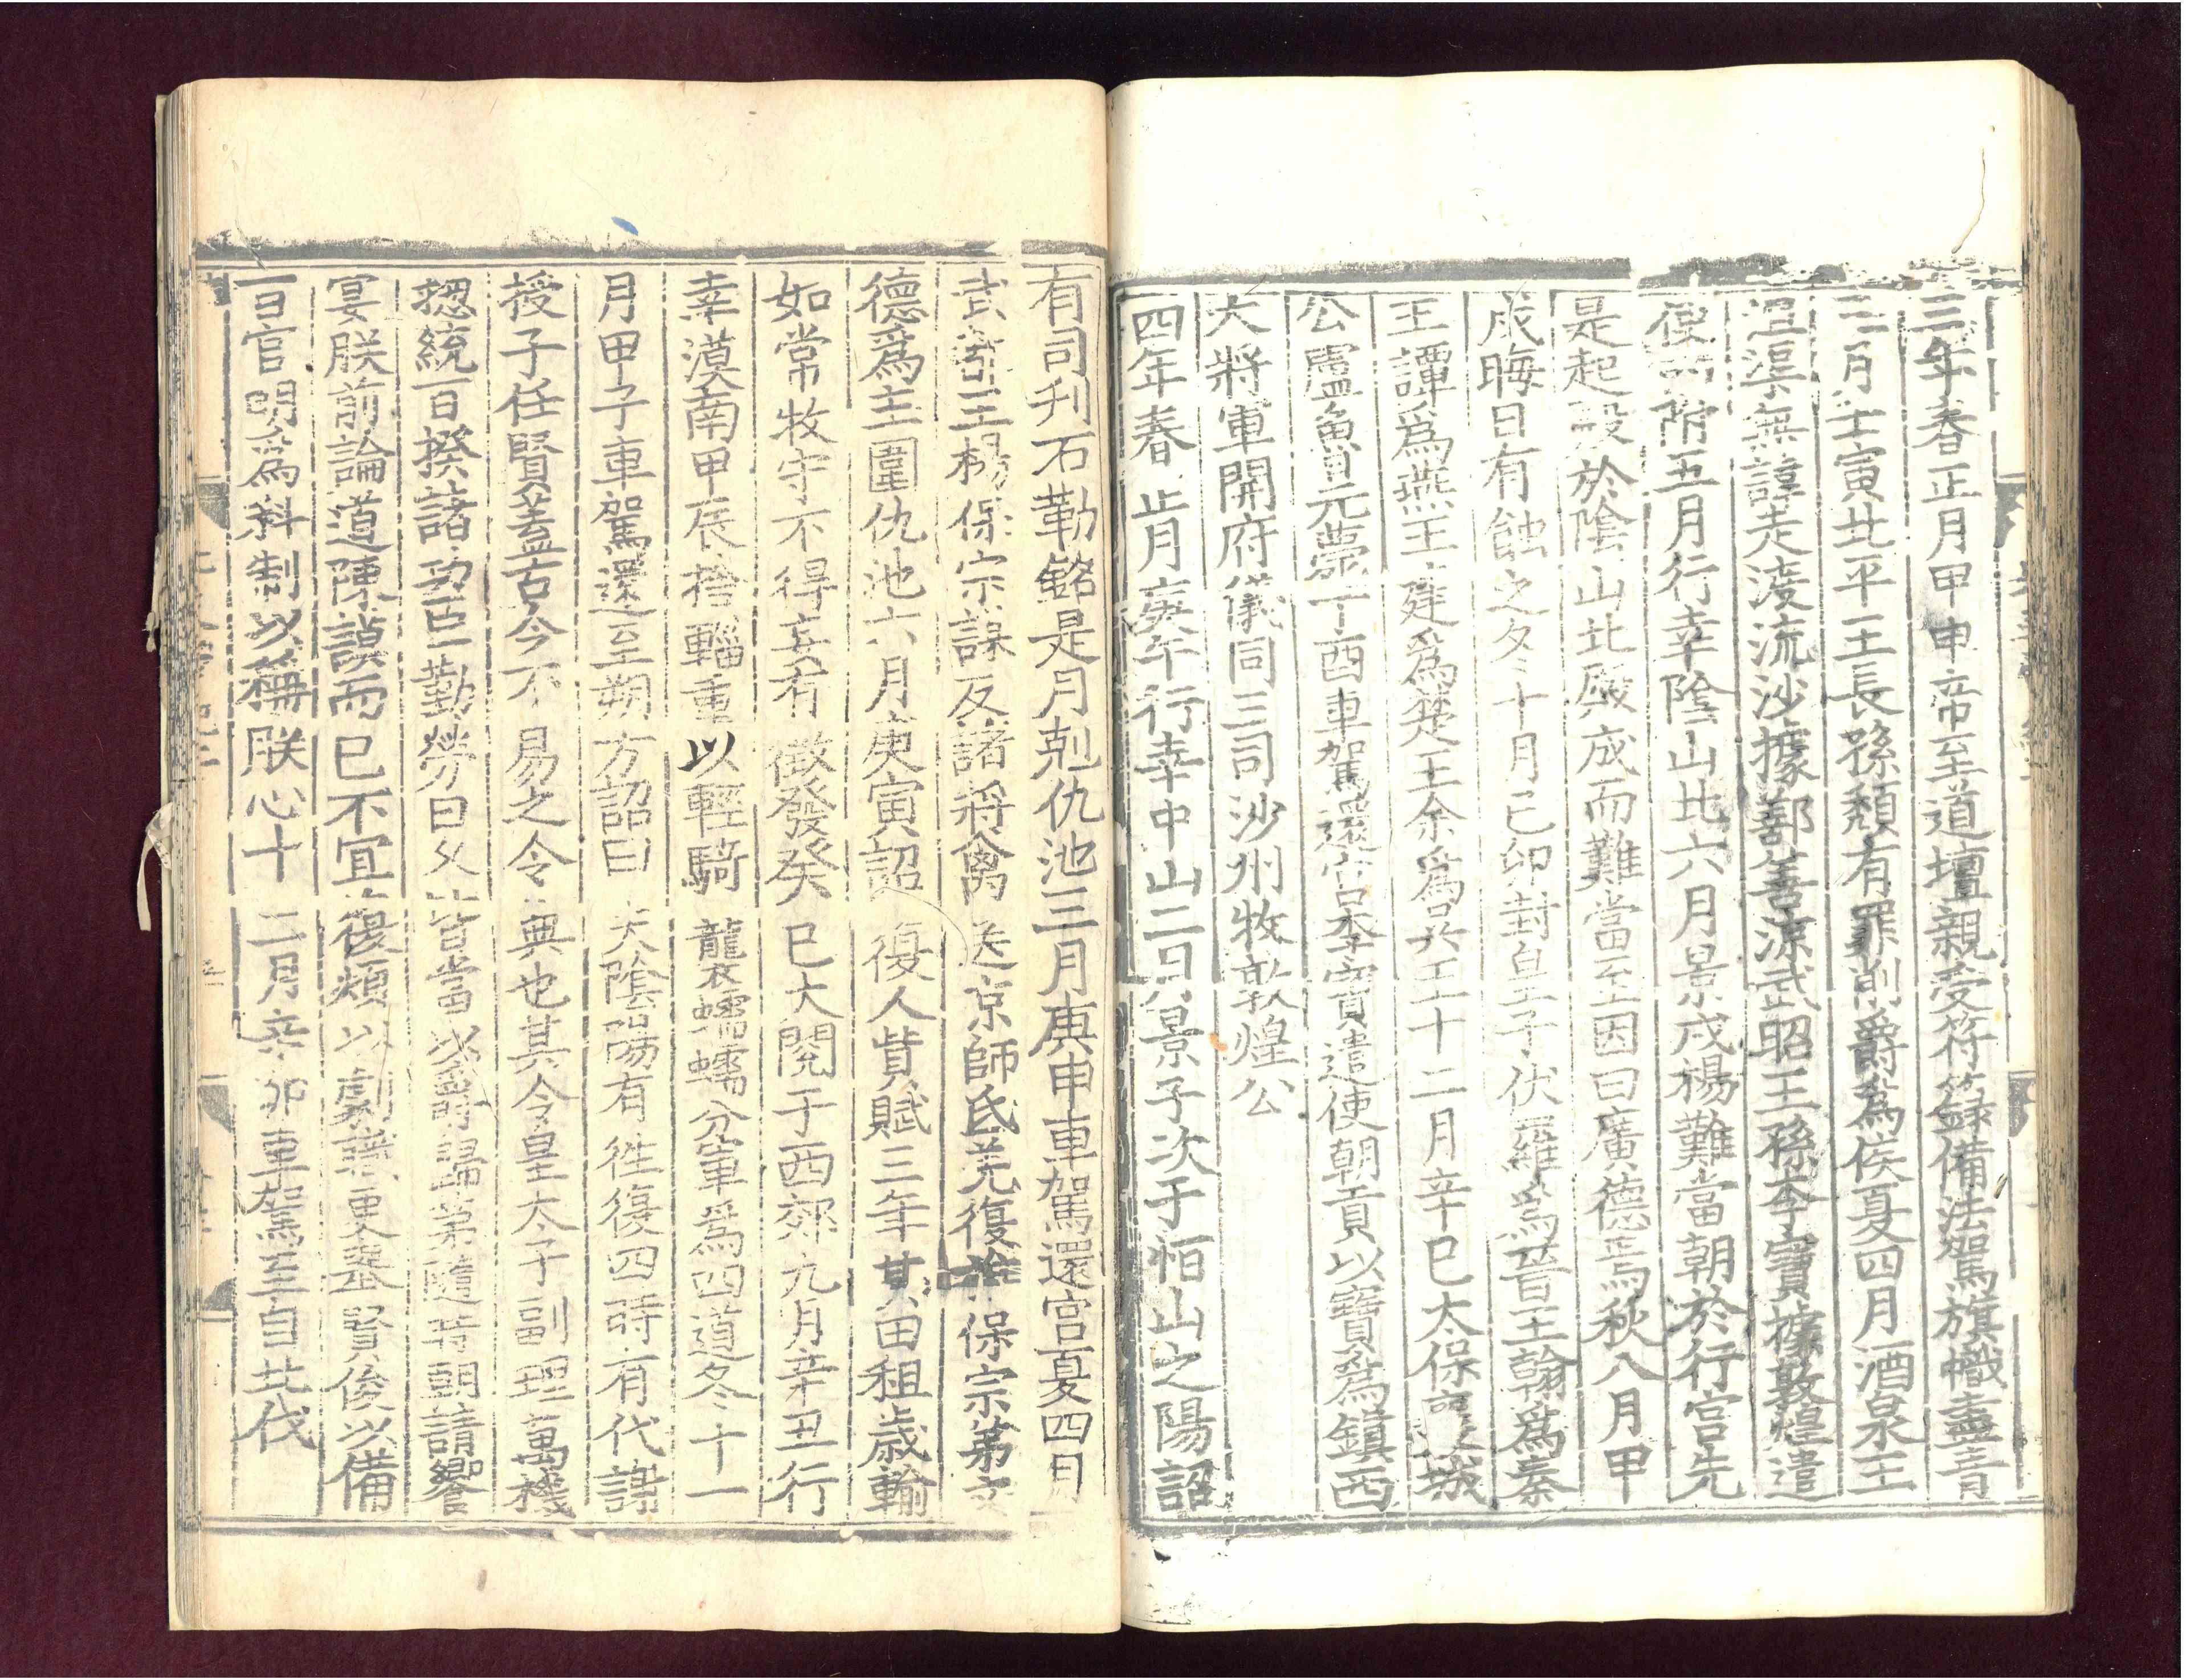 三年春正月甲申帝至道壇親受符籙備法駕旗幟盡青
三月壬寅北平王長孫頹有罪削爵爲侯夏四月酒泉王
沮渠無諱走渡流沙據鄯善涼武昭王孫李寶據敦煌遣
使內附五月行幸陰山北六月景戌楊難當朝於行宮先
是起殿於陰山北殿成而難當至因曰廣德焉秋八月甲
戌晦日有蝕之冬十月己卯封皇子伏羅爲晉王翰爲秦
王譚爲燕王建爲楚王余爲吳王十二月辛巳太保襄城
公盧魯元薨丁酉車駕還宮李寶遣使朝貢以寶爲鎮西
大將軍開府儀同三司沙州牧敦煌公
四年春正月庚午行幸中山二月景子次于恒山之陽詔
有司刋石勒銘是月剋仇池三月庚申車駕還宮夏四月
武都王楊保宗謀反諸將禽送京師氐羌復推保宗弟文
德爲主圍仇池六月庚寅詔復人貲賦三年其田租歲輸
如常牧守不得妄有徵發癸巳大閱于西郊九月辛丑行
幸漠南甲辰捨輜重以輕騎襲蠕蠕分軍爲四道冬十一
月甲子車駕還至朔方詔曰夫陰陽有徃復四時有代謝
授子任賢蓋古今不易之令典也其令皇太子副理萬機
揔統百揆諸功臣勤勞日久皆當以爵歸第隨時朝請饗
宴朕前論道陳謨而已不宜復煩以劇職更舉賢俊以備
百官明爲科制以稱朕心十二月辛卯車駕至自北伐